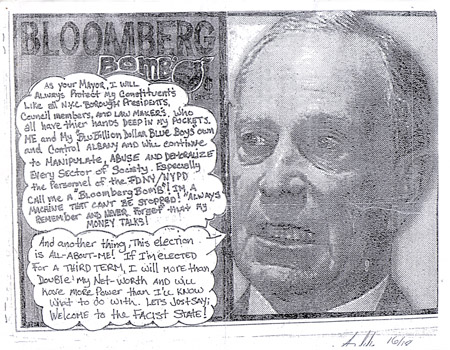 BLOOMBERG
BOMB
As your Mayor, I will
ALWAYS Protect my Constituent's
Like all N.Y.C. Borough Presidents,
Council members, AND LAW MAKERS, who
all have thier HANDS DEEP IN my POCKETS.
ME and My Billion Dollar BLUE Boys own
and Control ALBANY and will continue
to MANIPULATE, ABUSE AND DEMORALIZE
Every Sector of Society. Especially
the Personnel of the FDNY/NYPD
Call me a "Bloomberg Bomb"! I'M A
MACHINE THAT CAN'T BE STOPPED! "ALWAYS
REMEMBER AND NEVER FORGET that my
MONEY TALKS!
And another thing, This election
is ALL-ABOUT-ME! If I'm elected
FOR A THIRD TERM, I will more than
Double my Net-Worth and will
have more Power than I'LL KNOW
What to do with. LETS JUST SAY;
WELCOME to the FACIST STATE!